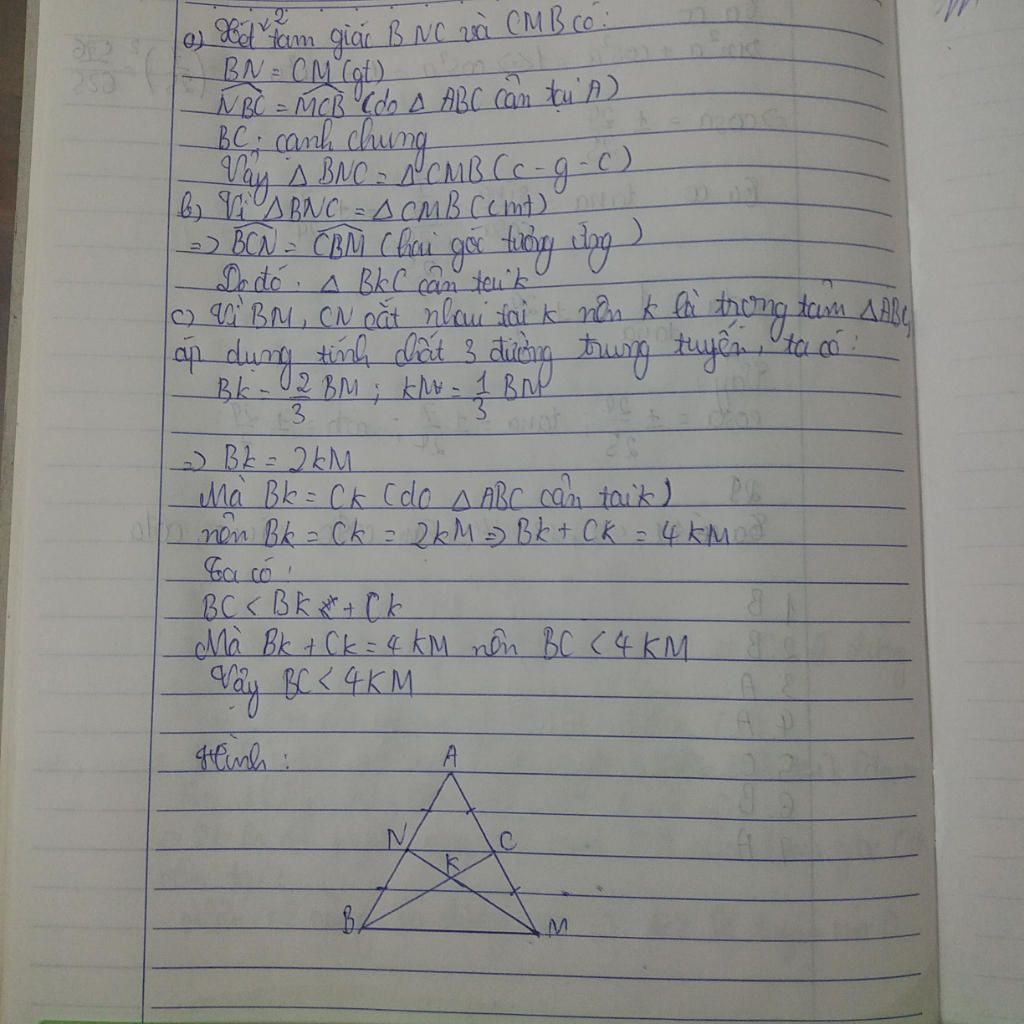 a) Xét 2 tam giác BNC và CMB có:
BN = CM (gt)
NBC = MCB (do Δ ABC cân tại A)
BC: cạnh chung
Vậy Δ BNC = Δ CMB (c - g - c)
b) Vì Δ BNC = Δ CMB (cmt)
=> BCN = CBM (hai góc tưởng ứng)
Do đó. Δ BkC cân tại k
c) Vì BM, CN cắt nhau tại k nên k là trọng tâm Δ ABC,
áp dụng tính chất 3 đường trung tuyến, ta có:
Bk = 2/3 BM; kM = 1/3 BM
=> Bk = 2kM
Mà Bk = Ck (do Δ ABC cân tại k)
nên Bk = Ck = 2kM => Bk + Ck = 4 kM
Ta có:
BC < Bk + Ck
Mà Bk + Ck = 4 KM nên BC < 4 KM
Vậy BC < 4KM
Hình:
A
N C
K
B M